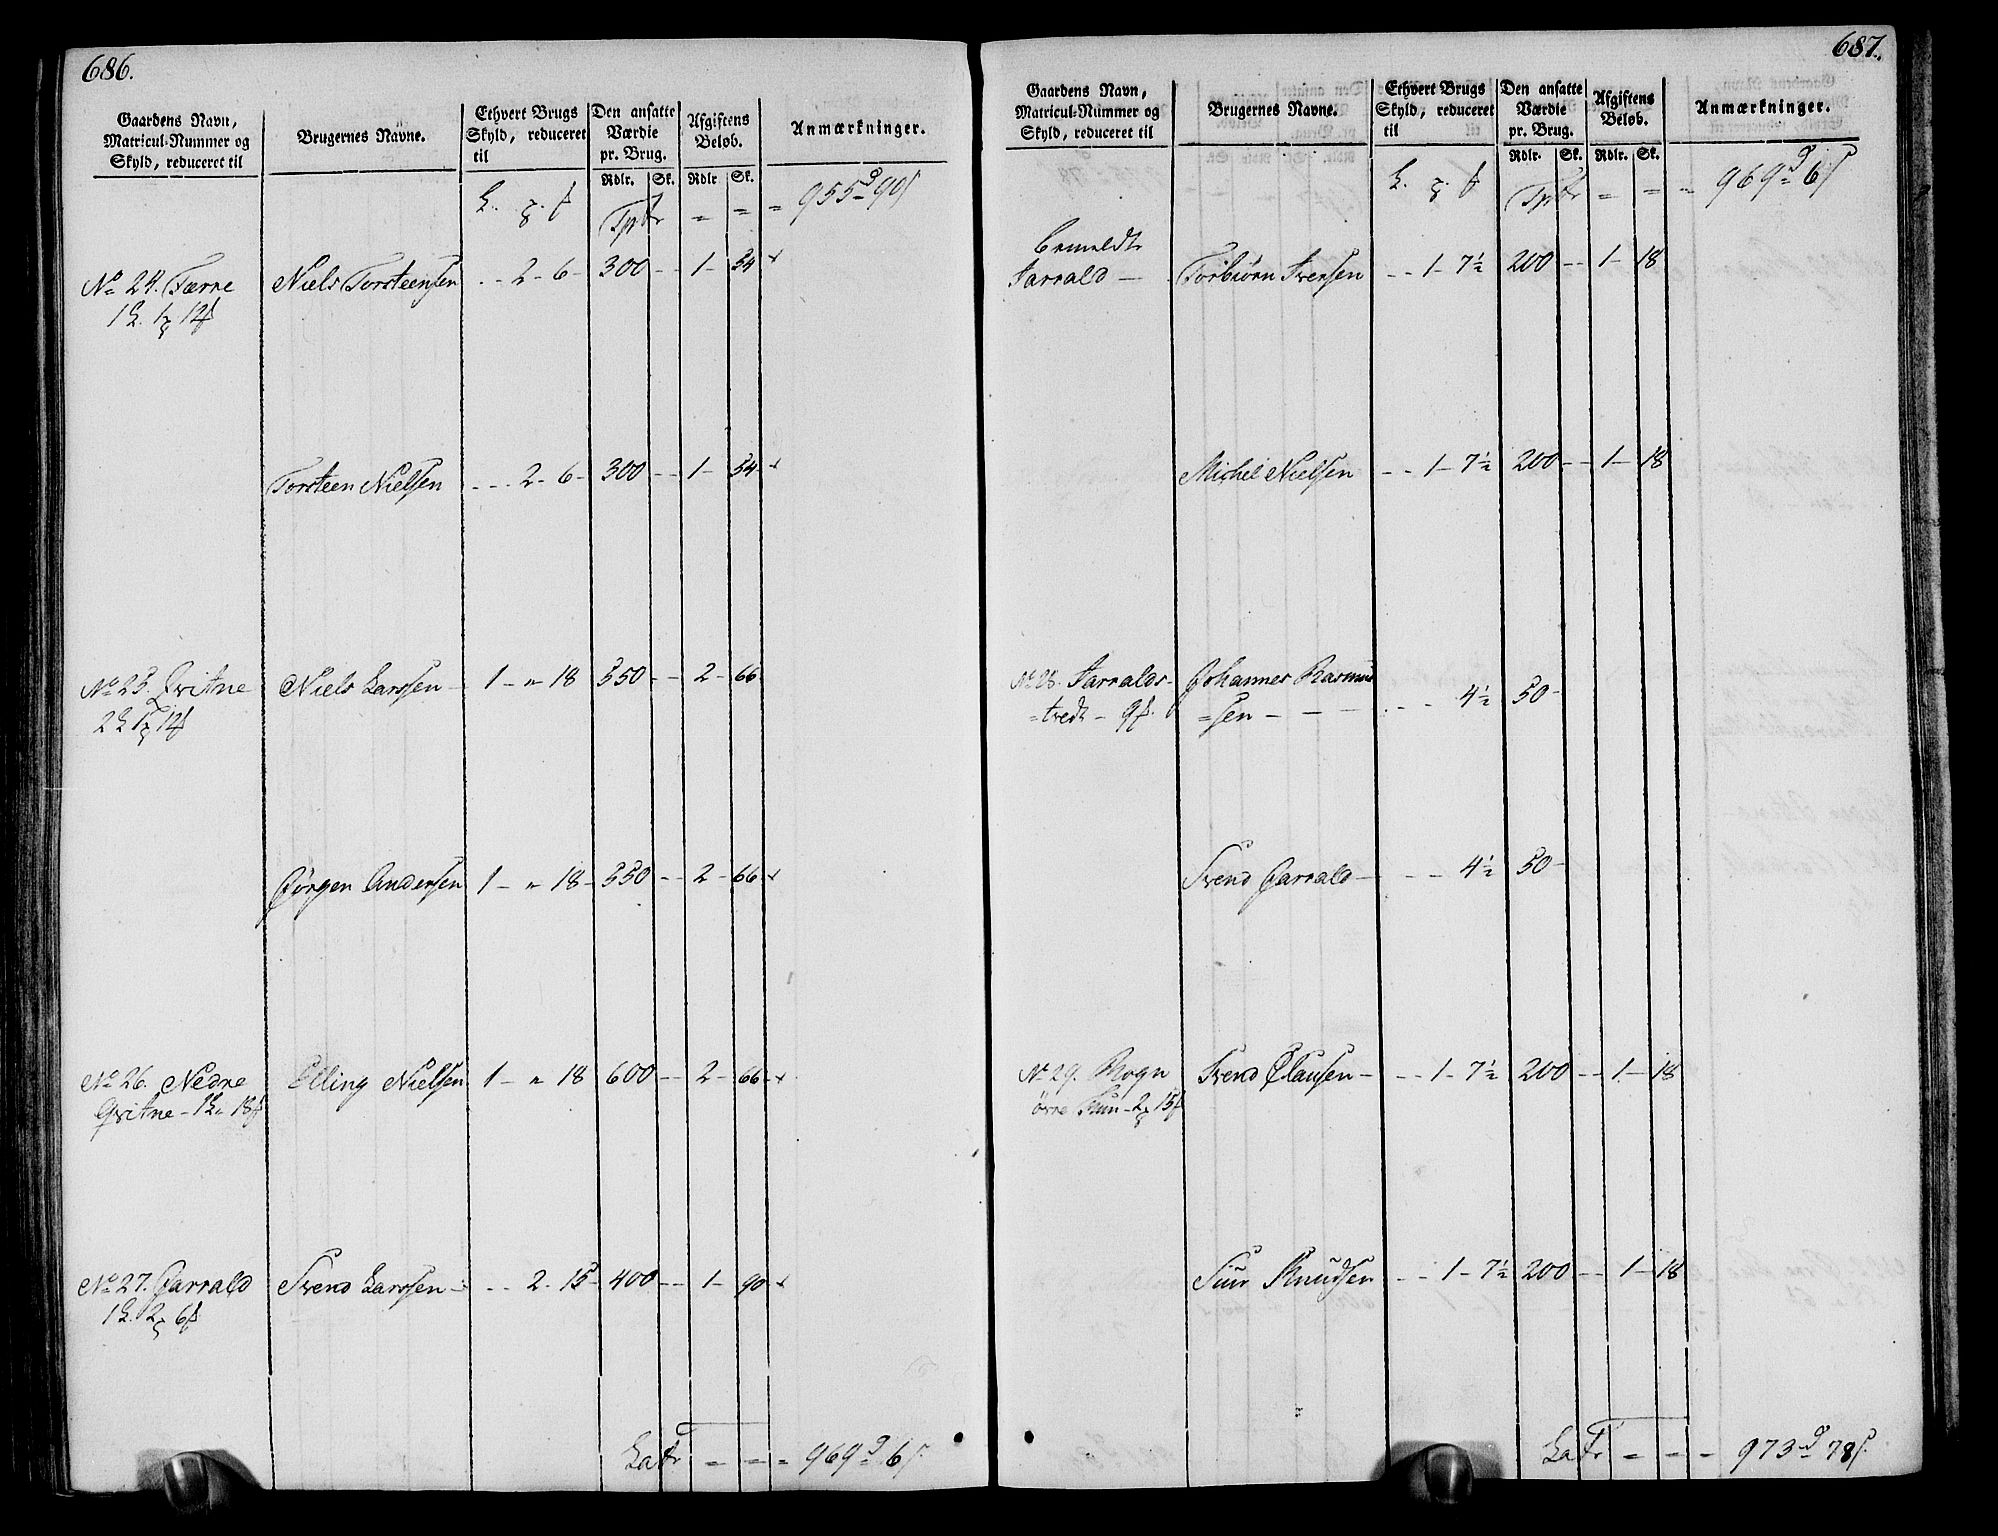 686.
Gaardens Navn, Matricul-Nummer og Skyld, reduceret til
Brugernes Navne.
Ethvert Brugs Skyld, reduceret til
Den ansatte Værdie pr. Brug.
Afgiftens Beløb.
Anmærkninger.
Rdlr. Sk. Rdlr Sk.
Tptr = = = 955 90
No 24. Tærre Niels Torsteensen - - 2 - 6 - 300 - - 1 - 54
Torsteen Nielsen - - - 2 - 6 - 300 - - 1 - 54
No 25. Qvitne Niels Larssen - 1 - " 18 550 - - 2 - 66
Jørgen Andersen 1 - " 18 - 550 - - 2 - 66
No 26. Nedre Elling Nielsen 1 - " 18 600 - - 2 - 66
Qvitne
No 27. Jarrald Svend Larssen - - - 2 - 15 - 400 - - 1 - 90
LaTr = = = 969 6
687.
Gaardens Navn, Matricul-Nummer og Skyld, reduceret til
Brugernes Navne.
Ethvert Brugs Skyld, reduceret til
Den ansatte Værdie pr. Brug.
Afgiftens Beløb.
Anmærkninger.
Rdlr. Sk. Rdlr. Sk.
Tptr = = = 969 6
bemeldte
Jarrald - Torbiørn Iversen - - 1 - 7½ 200 - - 1 - 18
Michel Nielsen - - 1 - 7½ 200 - - 1 - 18
No 28. Jarralds- Johannes Rasmus
=tvedt - =sen - - - - - - 4½ 50 -
Svend Jarrald - - - 4½ 50 -
No 29. Rogn Svend Clausen - - - 1 - 7½ 200 - - 1 - 18
øvre
Siur Knudsen - - 1 - 7½ 200 - - 1 - 18
LaTr = = - 973 78